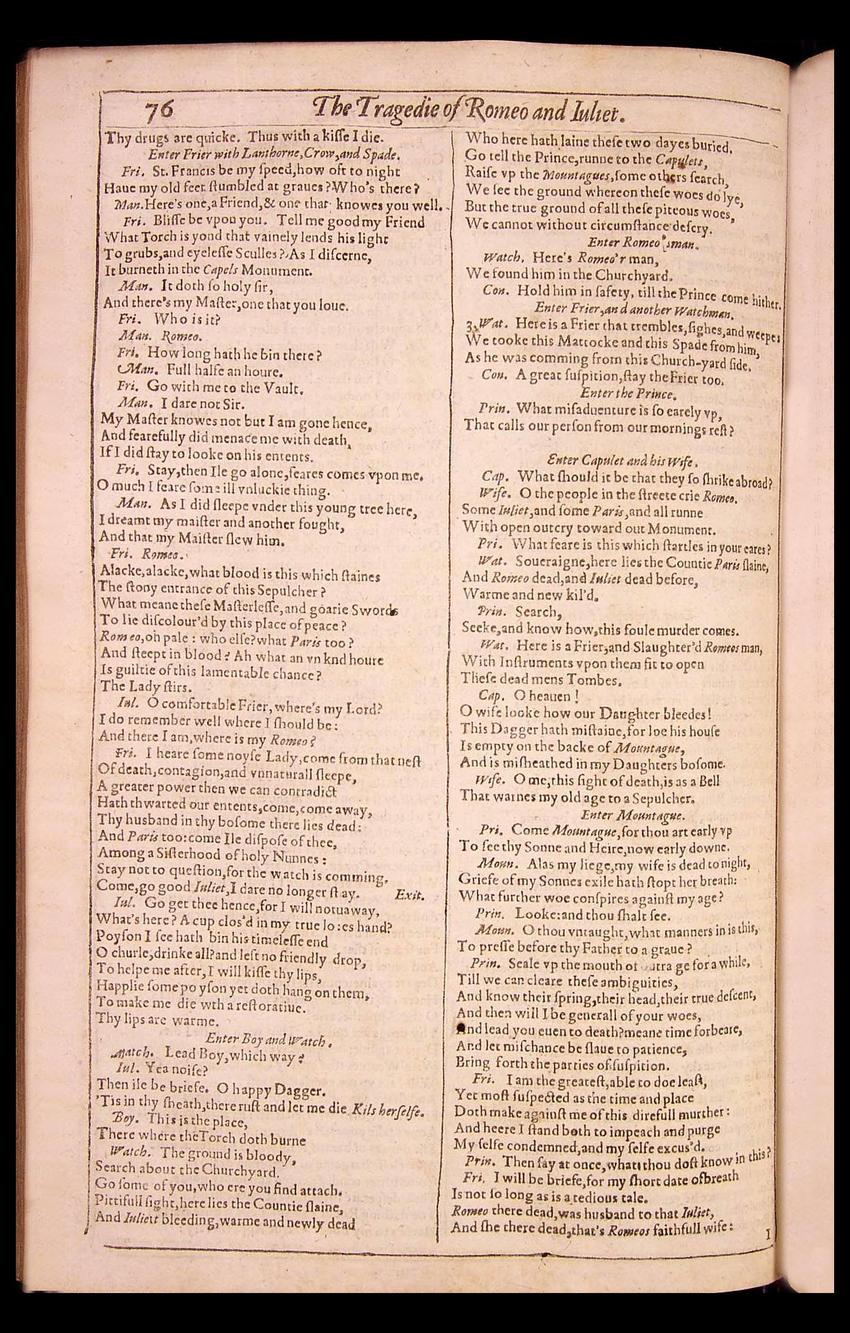 76
The Tragedie of Romeo and Iuliet.
Thy drugs are quicke. Thus with a kiſſe I die.
Enter Frier with Lanthorne, Crow, and Spade.
Fri. St. Francis be my ſpeed, how oft to night
Haue my old feet ſtumbled at graues? Who's there?
Man. Here's one, a Friend, & one that knowes you well.
Fri. Bliſſe be vpon you. Tell me good my Friend
What Torch is yond that vainely lends his light
To grubs, and eyeleſſe Sculles? As I diſcerne,
It burneth in the Capels Monument.
Man. It doth ſo holy ſir,
And there's my Maſter, one that you loue.
Fri. Who is it?
Man. Romeo.
Fri. How long hath he bin there?
Man. Full halfe an houre.
Fri. Go with me to the Vault.
Man. I dare not Sir.
My Maſter knowes not but I am gone hence,
And fearefully did menace me with death,
If I did ſtay to looke on his entents.
Fri. Stay, then Ile go alone, feares comes vpon me.
O much I feare ſome ill vnluckie thing.
Man. As I did ſleepe vnder this young tree here,
I dreamt my maiſter and another fought,
And that my Maiſter ſlew him.
Fri. Romeo.
Alacke, alacke, what blood is this which ſtaines
The ſtony entrance of this Sepulcher?
What meane theſe Maſterleſſe, and goarie Swords
To lie diſcolour'd by this place of peace?
Romeo, oh pale: who elſe? what Paris too?
And ſteept in blood? Ah what an vnknd houre
Is guiltie of this lamentable chance?
The Lady ſtirs.
Iul. O comfortable Frier, where's my Lord?
I do remember well where I ſhould be:
And there I am, where is my Romeo?
Fri. I heare ſome noyſe Lady, come from that neſt
Of death, contagion, and vnnaturall ſleepe,
A greater power then we can contradict
Hath thwarted our entents, come, come away,
Thy husband in thy boſome there lies dead:
And Paris too: come Ile diſpoſe of thee,
Among a Siſterhood of holy Nunnes:
Stay not to queſtion, for the watch is comming.
Come, go good Iuliet, I dare no longer ſtay. Exit.
Iul. Go get thee hence, for I will notuaway,
What's here? A cup clos'd in my true lo:es hand?
Poyſon I ſee hath bin his timeleſſe end
O churle, drinke all? and left no friendly drop,
To helpe me after, I will kiſſe thy lips,
Happlie ſome poyſon yet doth hang on them,
To make me die wth a reſtoratiue.
Thy lips are warme.
Enter Boy and Watch.
Watch. Lead Boy, which way?
Iul. Yea noiſe?
Then ile be briefe. O happy Dagger.
'Tis in thy ſheath, there ruſt and let me die Kils herſelfe.
Boy. This is the place,
There where the Torch doth burne
Watch. The ground is bloody,
Search about the Churchyard.
Go ſome of you, who ere you find attach.
Pittifull ſight, here lies the Countie ſlaine,
And Iuliett bleeding, warme and newly dead
Who here hath laine theſe two dayes buried.
Go tell the Prince, runne to the Capulets,
Raiſe vp the Mountagues, ſome others ſearch,
We ſee the ground whereon theſe woes do lye,
But the true ground of all theſe piteous woes,
We cannot without circumſtance deſcry.
Enter Romeo'sman.
Watch. Here's Romeo'r man,
We found him in the Churchyard.
Con. Hold him in ſafety, till the Prince come hither.
Enter Frier, and another Watchman.
3. Wat. Here is a Frier that trembles, ſighes, and weepes
We tooke this Mattocke and this Spade from him,
As he was comming from this Church-yard ſide.
Con. A great ſuſpition, ſtay the Frier too.
Enter the Prince.
Prin. What miſaduenture is ſo earely vp,
That calls our perſon from our mornings reſt?
Enter Capulet and his Wife.
Cap. What ſhould it be that they ſo ſhrike abroad?
Wife. O the people in the ſtreete crie Romeo.
Some Iuliet, and ſome Paris, and all runne
With open outcry toward out Monument.
Pri. What feare is this which ſtartles in your eares?
Wat. Soueraigne, here lies the Countie Paris ſlaine,
And Romeo dead, and Iuliet dead before,
Warme and new kil'd.
Prin. Search,
Seeke, and know how, this foule murder comes.
Wat. Here is a Frier, and Slaughter'd Romeos man,
With Inſtruments vpon them fit to open
Theſe dead mens Tombes.
Cap. O heauen!
O wife looke how our Daughter bleedes!
This Dagger hath miſtaine, for loe his houſe
Is empty on the backe of Mountague,
And is miſheathed in my Daughters boſome.
Wife. O me, this ſight of death, is as a Bell
That warnes my old age to a Sepulcher.
Enter Mountague.
Pri. Come Mountague, for thou art early vp
To ſee thy Sonne and Heire, now early downe.
Moun. Alas my liege, my wife is dead to night,
Griefe of my Sonnes exile hath ſtopt her breath:
What further woe conſpires againſt my age?
Prin. Looke: and thou ſhalt ſee.
Moun. O thou vntaught, what manners in is this,
To preſſe before thy Father to a graue?
Prin. Seale vp the mouth of outrage for a while,
Till we can cleare theſe ambiguities,
And know their ſpring, their head, their true deſcent,
And then will I be generall of your woes,
And lead you euen to death? meane time forbeare,
And let miſchance be ſlaue to patience,
Bring forth the parties of ſuſpition.
Fri. I am the greateſt, able to doe leaſt,
Yet moſt ſuſpected as the time and place
Doth make againſt me of this direfull murther:
And heere I ſtand both to impeach and purge
My ſelfe condemned, and my ſelfe excus'd.
Prin. Then ſay at once, what thou doſt know in this?
Fri. I will be briefe, for my ſhort date of breath
Is not ſo long as is a tedious tale.
Romeo there dead, was husband to that Iuliet,
And ſhe there dead, that's Romeos faithfull wife:
I